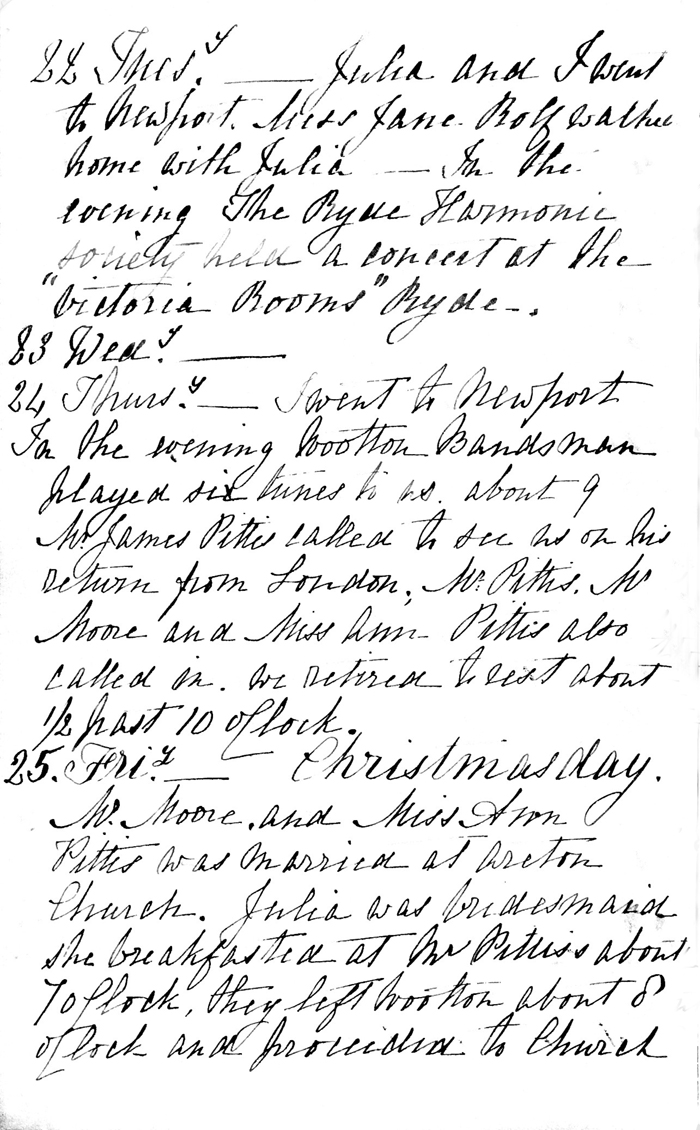 22 Tues.y —— Julia and I went
to Newport. Miss Jane Rolf walked
home with Julia — In the
evening The Ryde Harmonic
society held a concert at the
"Victoria Rooms" Ryde -.
23 Wed.y ——
24 Thurs.y — I went to Newport
In the evening Wootton Bandsman
played six tunes to us. about 9
Mr James Pittis called to see us on his
return from London, Mr. Pittis. Mr
Moore and Miss Ann Pittis also
called in. we retired to rest about
1/2 past 10 oClock.
25. Fri.y — Christmas day.
Mr. Moore. and Miss Ann
Pittis was married at Areton
Church. Julia was bridesmaid
she breakfasted at Mr Pittiss about
7 oClock, they left Wootton about 8
oClock and proceeded to Church